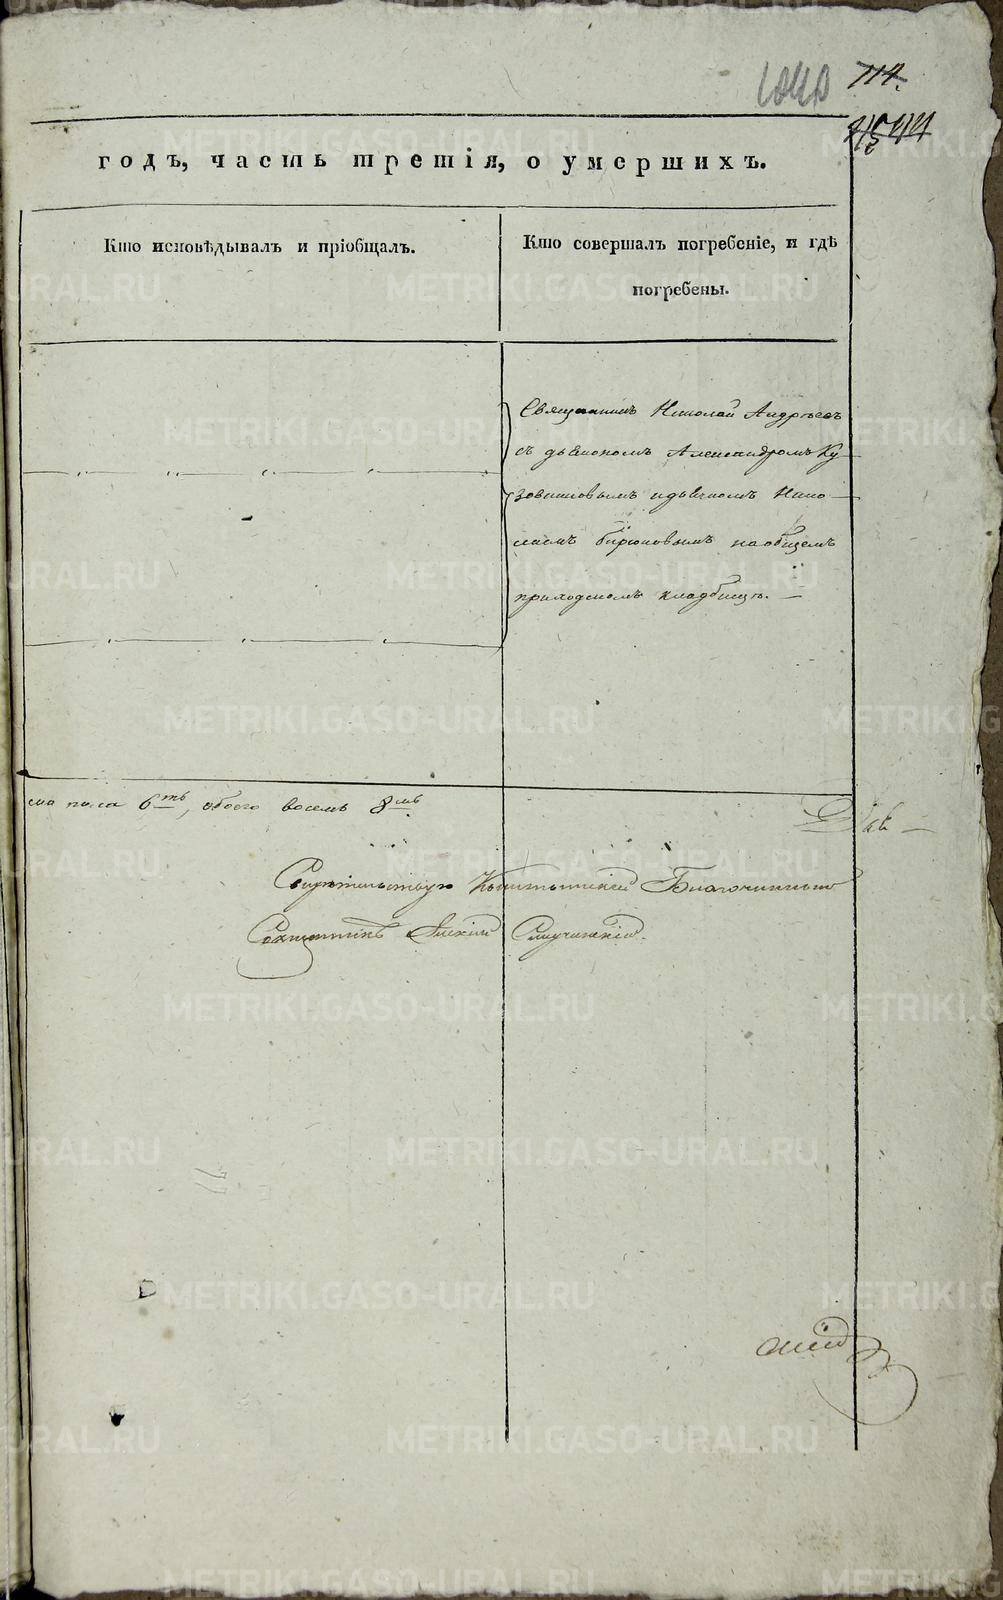 1040 714.
годъ, часть третія, о умершихъ.
Кто исповѣдывалъ и пріобщалъ.
Кто совершалъ погребеніе, и гдѣ
погребены.
Священникъ Николай Андрѣевъ
съ дьякономъ Александромъ Ку
зовниковымъ и дьячкомъ Нико
лаемъ Бирюковымъ на общемъ
приходскомъ кладбищѣ.
ска пола 6ть, обоего восемь 8мь
Свидѣтельствую Благочинный
Священникъ
METRIKI.GASO-URAL.RU